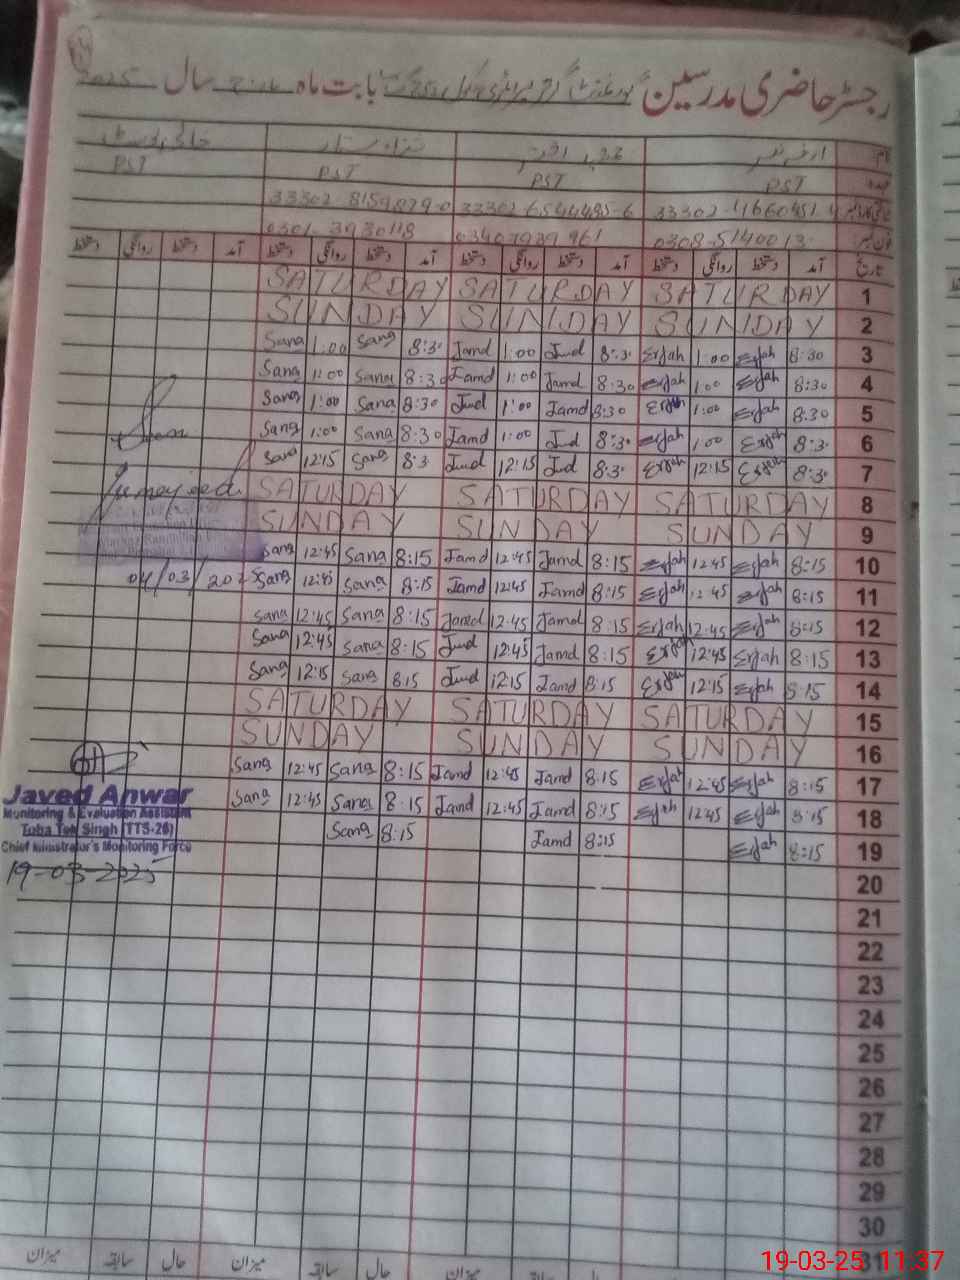 رجسٹر حاضری مدرسین گورنمنٹ گرلز پرائمری سکول بابت ماہ مارچ سال 2025
نام
خالی پوسٹ
عہدہ PST PST PST PST
33302-41660451-4 33302-6544485-6 33302-8159879-0
0308-5140013 03407939961 0301-3930118
تاریخ آمد دستخط روانگی دستخط آمد دستخط روانگی دستخط آمد دستخط روانگی دستخط آمد دستخط روانگی دستخط
SATURDAY SATURDAY SATURDAY 1
SUNDAY SUNDAY SUNDAY 2
Sana 1:00 Sana 8:30 Jamd 1:00 Jmd 8:30 Erjah 1:00 Erjah 8:30 3
Sana 1:00 Sana 8:30 Jamd 1:00 Jamd 8:30 Erjah 1:00 Erjah 8:30 4
Sana 1:00 Sana 8:30 Jmd 1:00 Jamd 8:30 Erjah 1:00 Erjah 8:30 5
Sana 1:00 Sana 8:30 Jamd 1:00 Jmd 8:30 Erjah 1:00 Erjah 8:30 6
Sana 12:15 Sana 8:3 Jmd 12:15 Jmd 8:30 Erjah 12:15 Erjah 8:30 7
SATURDAY SATURDAY SATURDAY 8
SUNDAY SUNDAY SUNDAY 9
Sana 12:45 Sana 8:15 Jamd 12:45 Jamd 8:15 Erjah 12:45 Erjah 8:15 10
04/03/202 Sana 12:45 Sana 8:15 Jamd 12:45 Jamd 8:15 Erjah 12:45 Erjah 8:15 11
Sana 12:45 Sana 8:15 Jamd 12:45 Jamd 8:15 Erjah 12:45 Erjah 8:15 12
Sana 12:45 Sana 8:15 Jmd 12:45 Jamd 8:15 Erjah 12:45 Erjah 8:15 13
Sana 12:15 Sana 8:15 Jmd 12:15 Jamd 8:15 Erjah 12:15 Erjah 8:15 14
SATURDAY SATURDAY SATURDAY 15
SUNDAY SUNDAY SUNDAY 16
Sana 12:45 Sana 8:15 Jamd 12:45 Jamd 8:15 Erjah 12:45 Erjah 8:15 17
Sana 12:45 Sana 8:15 Jamd 12:45 Jamd 8:15 Erjah 12:45 Erjah 8:15 18
Sana 8:15 Jamd 8:15 Erjah 8:15 19
Javed Anwar
Monitoring & Evaluation Assistant
Toba Tek Singh (TTS-26)
Chief Minister's Monitoring Force
19-03-2025
20
21
22
23
24
25
26
27
28
29
30
31
حال سابقہ میزان حال سابقہ میزان
19-03-25 11:37